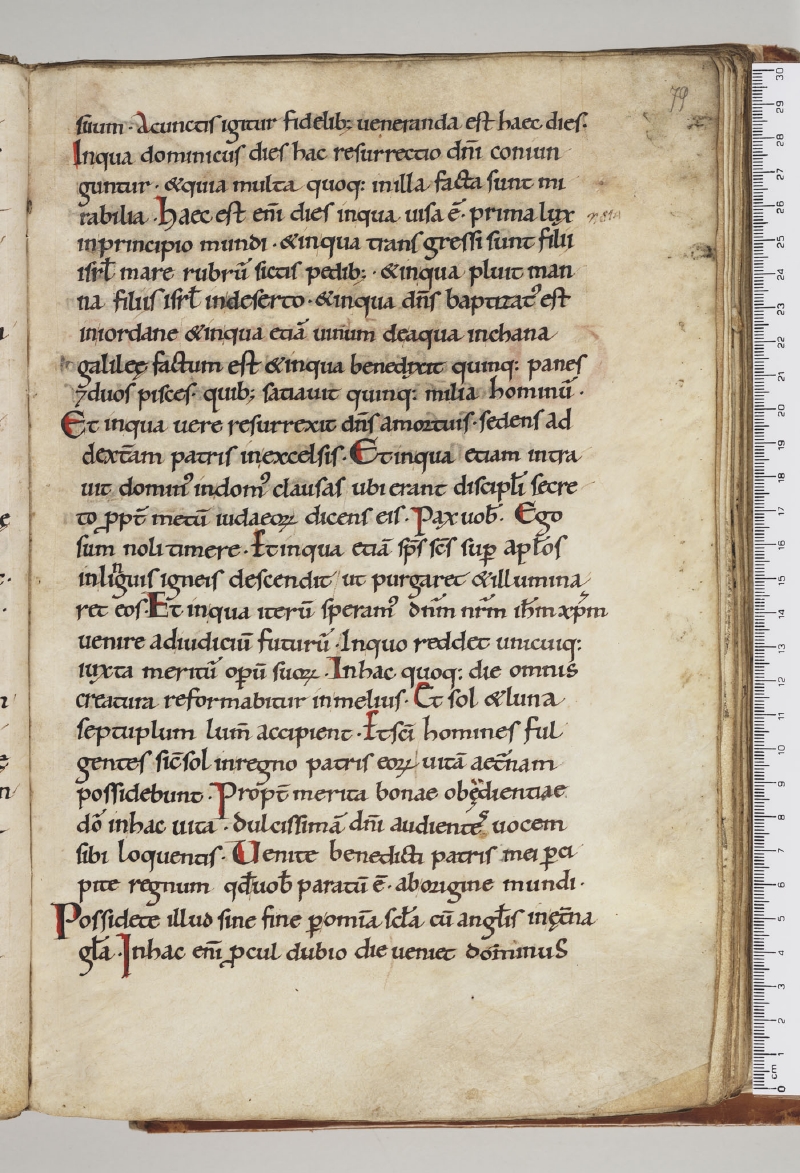 79
suum· A cunctis igitur fidelib; ueneranda est haec dies·
Inqua dominicus dies hac resurrectio dn̄i coniun
guntur· &quia multa quoq; inilla facta sunt mi
rabilia· Haec est eni̅ dies inqua uisa ē· prima lux
inprincipio mundi· &inqua transgressi sunt filii
isrl̄ mare rubrū siccis pedib;· &inqua pluit man
na filiis isrl̄ indeserto· &inqua dn̄s baptizatꝰ est
iniordane &inqua etiā uinum deaqua inchana
galileę factum est &inqua benedixit quinq; panes
⁊duos pisces· quib; satiauit quinq; milia hominū·
Et inqua uere resurrexit dn̄s amortuis· sedens ad
dext̄am patris inexcelsis· Et inqua etiam intra
uit dominꝰ indomꝰ clausas ubi erant discipl̄i secre
to ꝓpt̄ metū iudaeoꝝ dicens eis· Pax uob̄· Ego
sum noli timere· Et inqua etiā sp̄s sc̄s suꝑ apl̄os
inlinguis igneis descendit ut purgaret &illumina
ret eos· Et inqua iterū speramꝰ dn̄m nr̄m ih̄m xp̄m
uenire adiudiciū futurū· Inquo reddet unicuiq;
iuxta meritū opeꝝ suoꝝ· Inhac quoq; die omnis
creatura reformabitur inmelius· Et sol &luna
septuplum lum̄ accipient· Et sc̄i homines ful
gentes sic̄ sol inregno patris eoꝝ uitā aet̄nam
possidebunt· Propt̄ merita bonae obędientiae
dō inhac uita· dulcissimā dn̄i audientes uocem
sibi loquentis· Uenite benedicti patris mei ꝑci
pite regnum qd̄ uob̄ paratū ē· aborigine mundi·
Possidete illud sine fine ꝑ omīa scl̄a cū angl̄is inęt̄na
gl̄a· Inhac eni̅ ꝓcul dubio die ueniet dominus